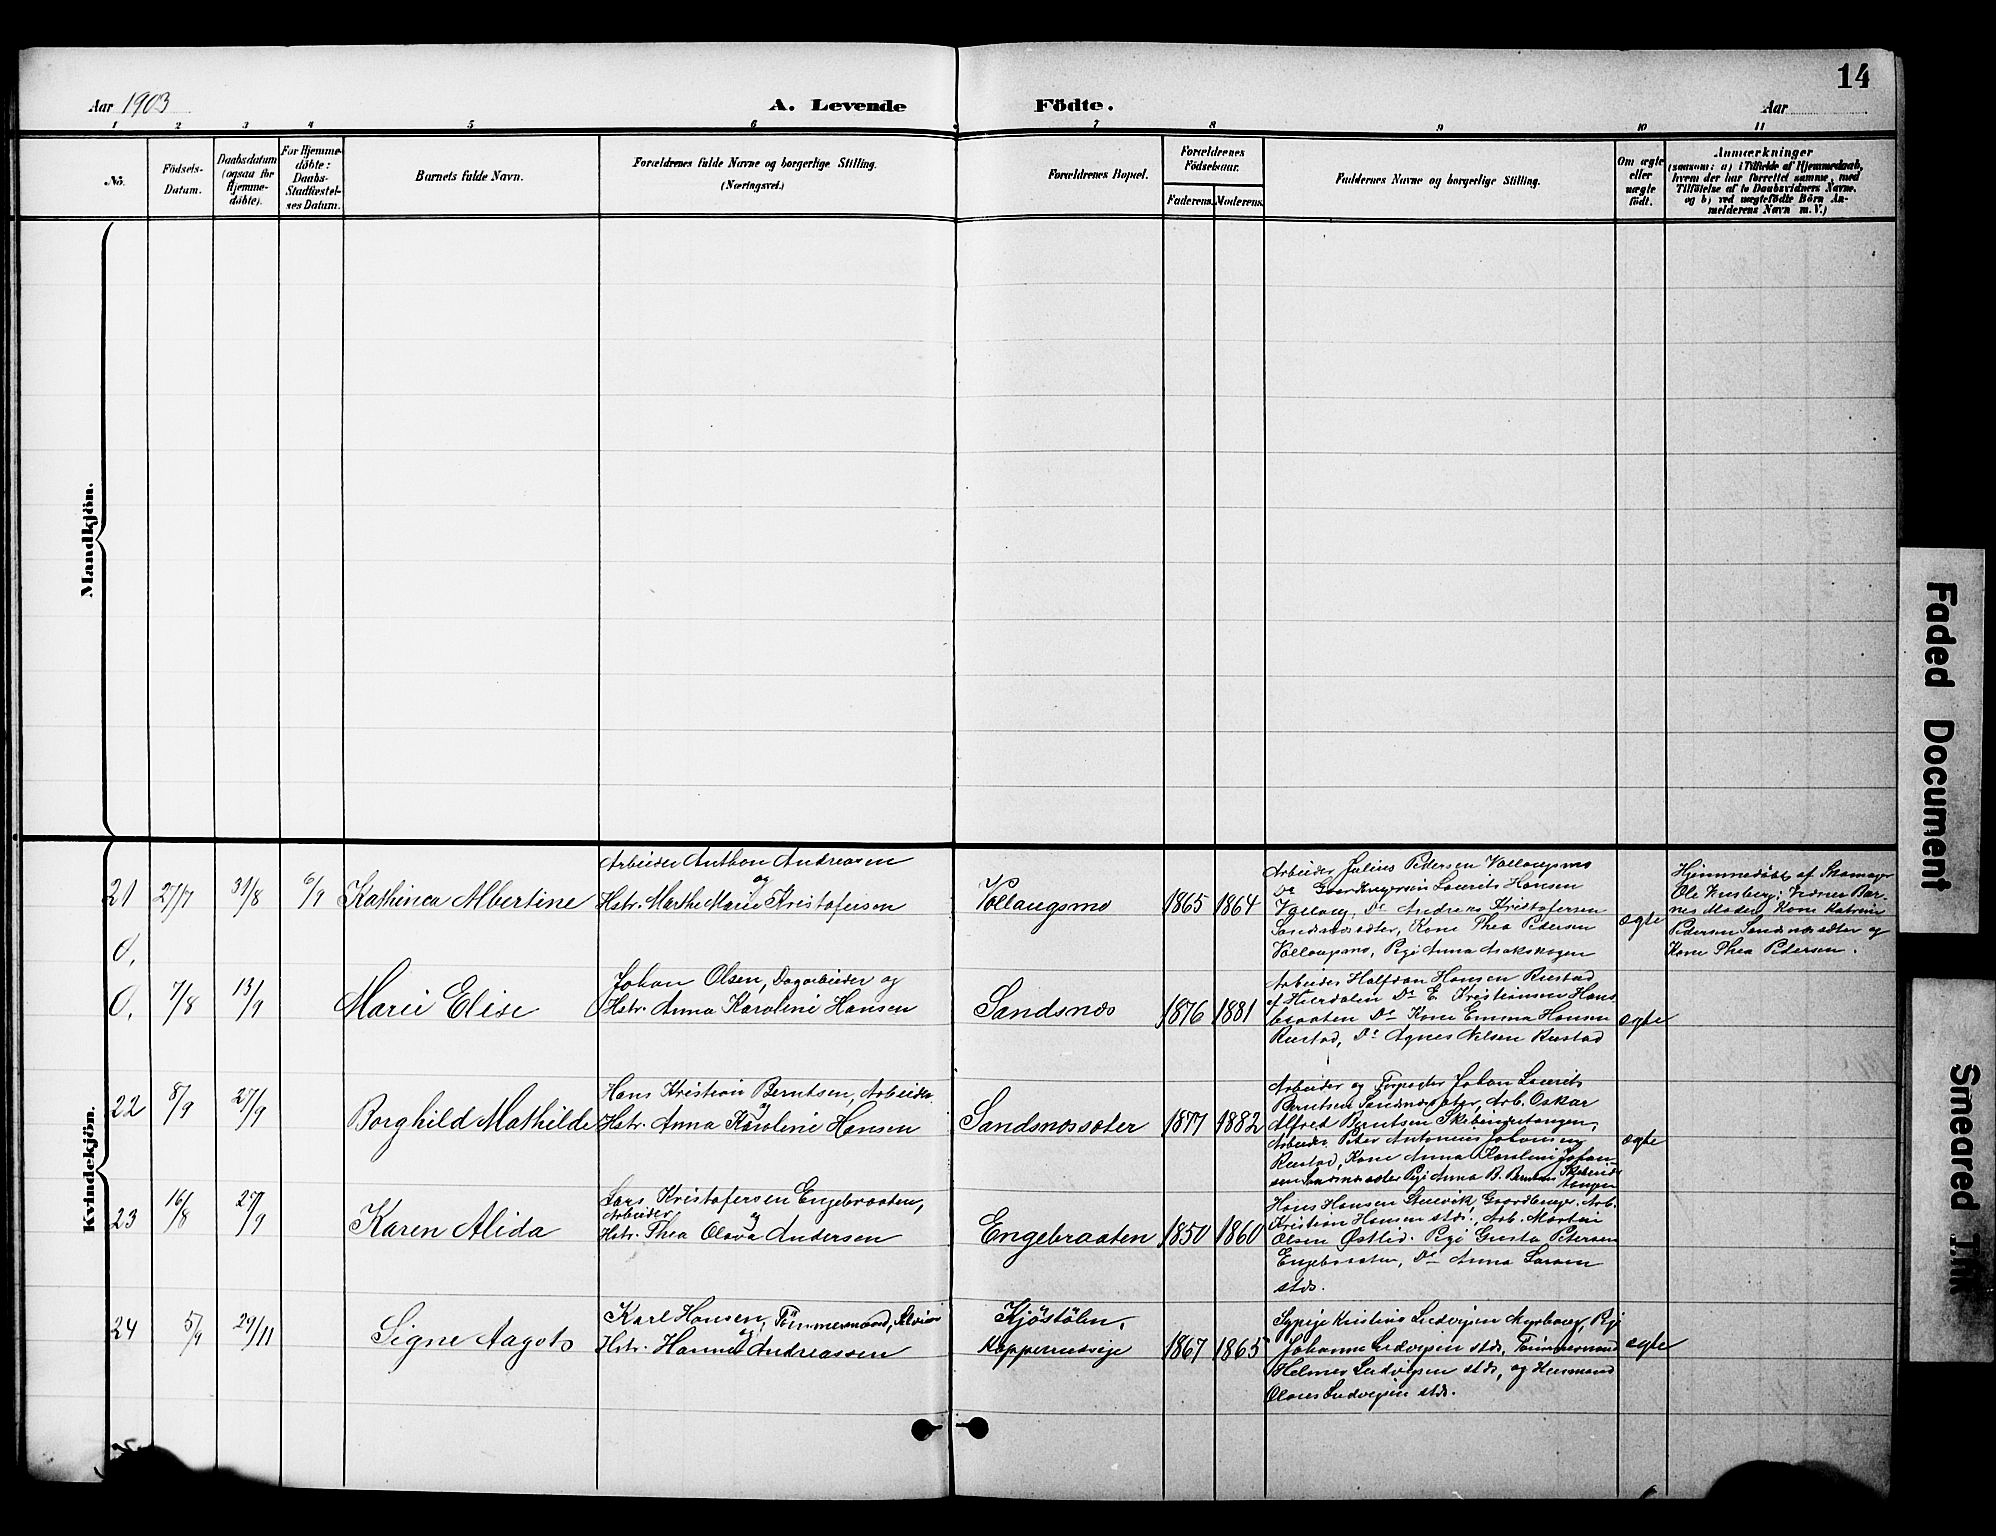 14
Aar 1903
A. Levende Födte.
Aar
1 2 3 4 5 6 7 8 9 10 11
No.
Födsels-
Datum.
Daabsdatum
(ogsaa for
Hjemme-
döbte).
For Hjemme-
döbte:
Daabs-
Stadfæstel-
ses Datum.
Barnets fulde Navn.
Forældrenes fulde Navne og borgerlige Stilling.
(Næringsvei.)
Forældrenes Bopæl.
Forældrenes
Födselsaar.
Faderens. Moderens.
Faddernes Navne og borgerlige Stilling.
Om ægte
eller
uægte
födt.
Anmærkninger
(saasom: a) i Tilfælde af Hjemmedaab,
hvem der har forrettet samme, med
Tilföielse af to Daabsvidners Navne,
og b) ved uægtefödte Börn An-
melderens Navn m. V.)
Mandkjön.
Kvindekjön.
21 27/7 31/8 6/9 Kathinca Albertine
Arbeider Anthon Andreasen
og
Hstr. Marthe Marie Kristofersen
Vollaugsmo 1865 1864
Arbeider Julius Pedersen Vollaugsmo
Do Gaardbruger Laurits Hansen
Vollaug, Do Andreas Kristofersen
Sandsnæssæter, Kone Thea Pedersen
Vollaugsmo, Pige Anna
ægte
Hjemmedøbt af Skomager
Ole
nes Moder, Kone Katrine
Pedersen Sandsnæssæter og
Kone Thea Pedersen.
0.
0. 7/8 13/9 Marie Elise
Johan Olsen, Dagarbeider og
Hstr. Anna Karoline Hansen
Sandsnæs 1876 1881
Arbeider Halfdan Hansen Rustad
Do E. Kristiansen Hans-
braaten Do Kone Emma Hansen
Rustad, Do Agnes Nilsen Rustad
ægte
22 8/9 27/9 Borghild Mathilde
Hans Kristian Berntsen, Arbeider
og
Hstr. Anna Karoline Hansen
Sandsnæssæter 1877 1882
Arbeider og Forpagter Johan Laurits
Berntsen Sandsnæssæter, Arb. Oskar
Alfred Berntsen Skibingertangen,
Arbeider Peter Antonius Johansen
Rustad, Kone Anna Karoline Johan-
sen Sandsnæssæter Pige Anna B. Berntsen
tangen
ægte
23 16/8 27/9 Karen Alida
Lars Kristofersen Engebraaten,
Arbeider,
og
Hstr. Thea Olava Andersen
Engebraaten 1850 1860
Hans Hansen Gaardbruger. Arb.
Kristian Hansen stds., Arb. Martin
Olsen Østlid. Pige Gusta Petersen
Engebraaten, Do Anna Larsen
stds.
24 5/9 29/11 Signe Aagot
Karl Hansen, Tömmermand,
og
Hstr. Hanna Andreassen
Kjöstölen, 1867 1865
Kristine Ludvigsen Pige
Johanne Ludvigsen stds, Tömmermand
Helmer Ludvigsen stds, og Husmand
Ludvigsen stds.
ægte
Faded Document
Smeared Ink